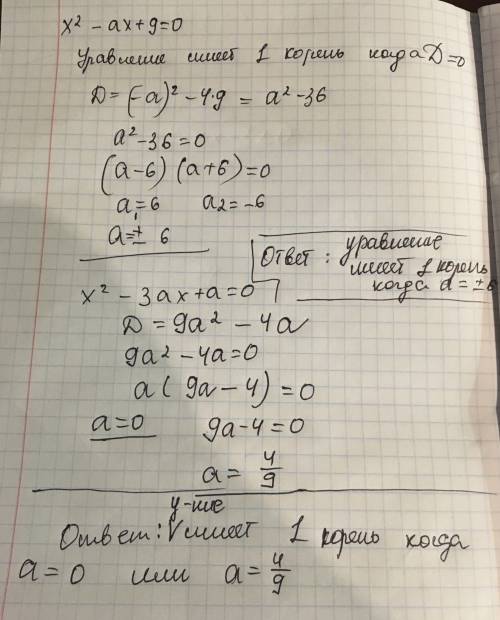 x² - ax + 9 = 0
Уравнение имеет 1 корень когда D=0
D = (-a)² - 4·9 = a² - 36
a² - 36 = 0
(a - 6) (a + 6) = 0
a₁ = 6 a₂ = -6
a = ± 6
Ответ: уравнение
имеет 1 корень
когда a = ±6
x² - 3ax + a = 0
D = 9a² - 4a
9a² - 4a = 0
a (9a - 4) = 0
a = 0 9a - 4 = 0
a = 4/9
Ответ: у-ние имеет 1 корень когда
a = 0 или a = 4/9